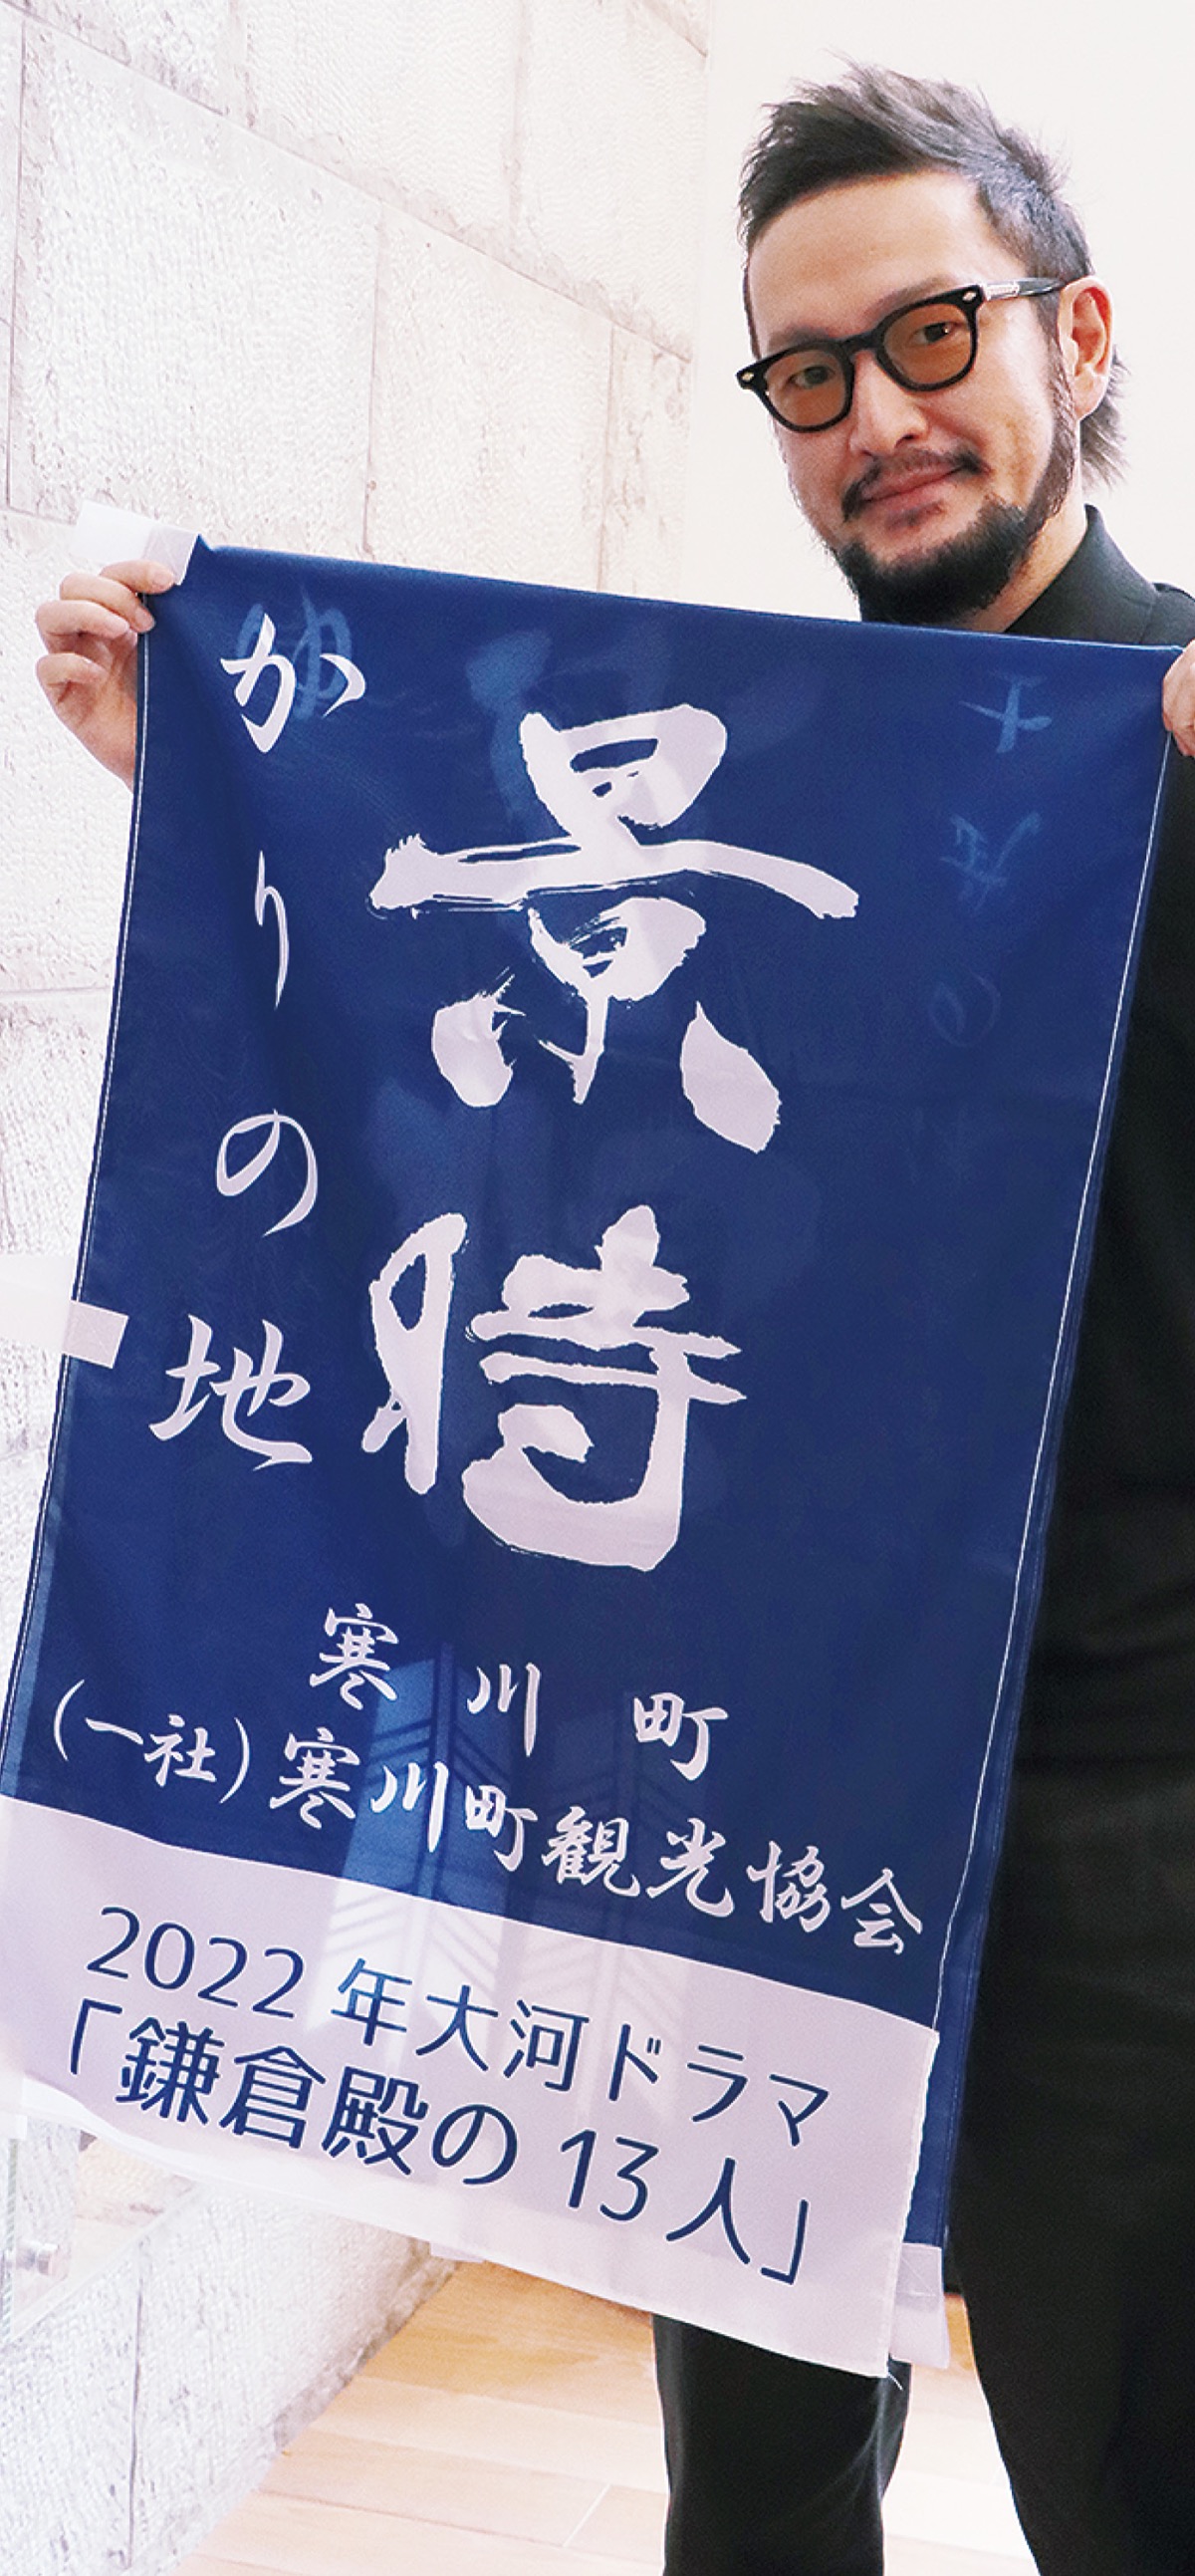 景時
かりの地
寒川町
（一社）寒川町観光協会
2022年大河ドラマ
「鎌倉殿の13人」